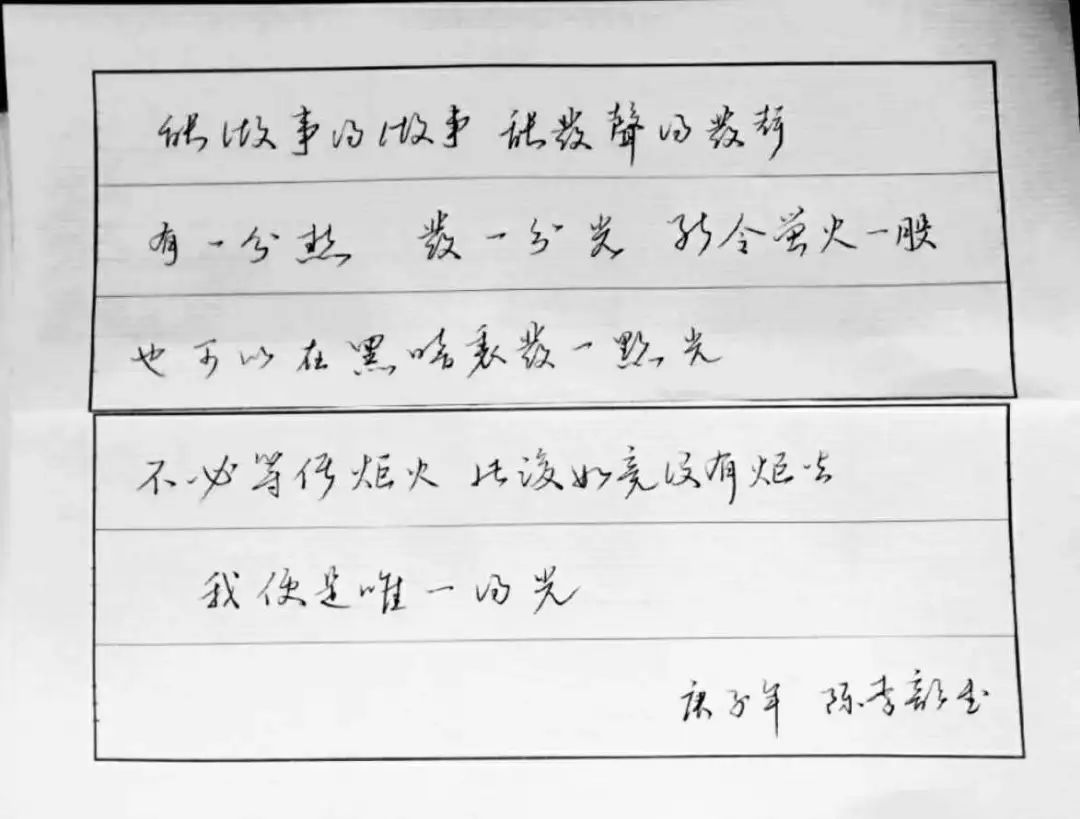 能做事的做事 能發聲的發聲
有一分热 發一分光 就令萤火一般
也可以在黑暗裏發一點光
不必等候炬火 此後如竟没有炬火
我便是唯一的光
庚子年 陈李书